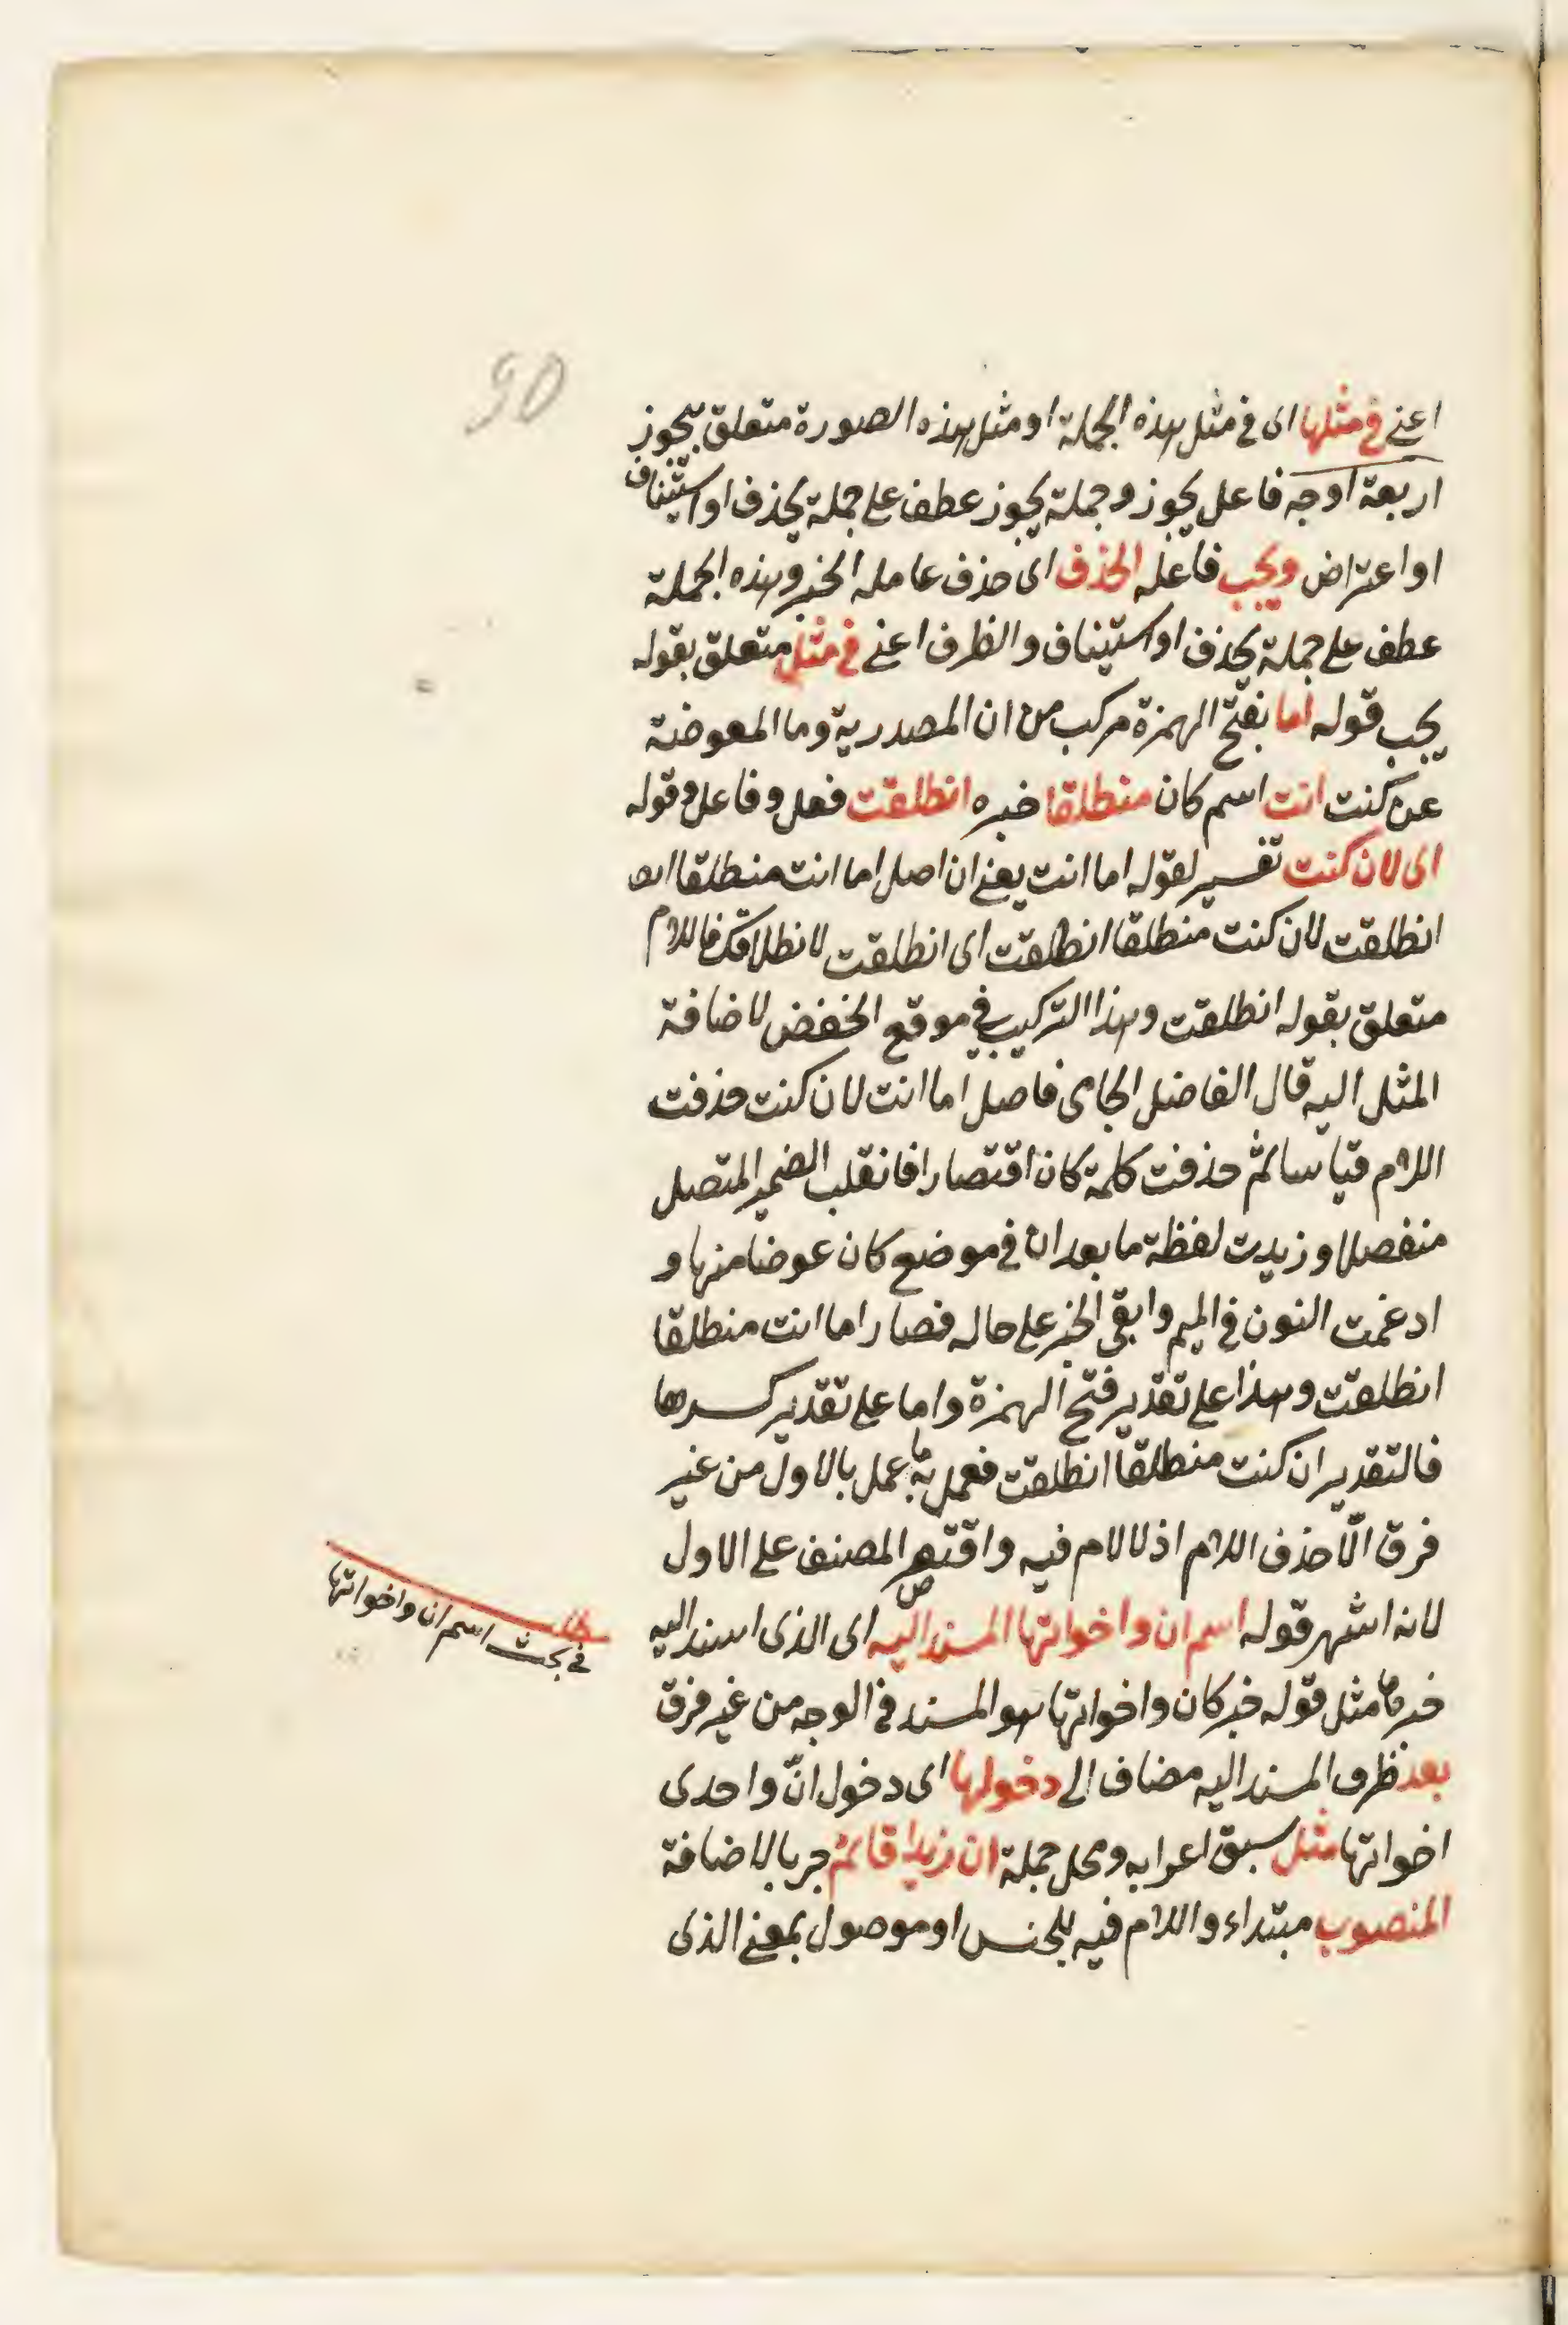 90
اعنى فى مثلها اى فى مثل هذه الجملة او مثل هذه الصورة متعلق بيجوز
اربعة اوجه فاعل يجوز وجملة يجوز عطف على جملة يحذف او استيناف
او اعتراض ويجب فاعله الحذف اى حذف عامله الخبر وهذه الجملة
عطف على جملة يحذف او استيناف والظرف اعنى فى مثل متعلق بقوله
يجب قوله اما بفتح الهمزة مركب من ان المصدرية وما المعوضة
عن كنت انت اسم كان منطلقا خبره انطلقت فعل وفاعل وقوله
اى لان كنت تفسير لقوله اما انت يعنى ان اصل اما انت منطلقا
انطلقت لان كنت منطلقا انطلقت اى انطلقت لانطلاقك فاللام
متعلق بقوله انطلقت وهذا التركيب فى موقع الخفض لاضافة
المثل اليه قال الفاضل الجامى فاصل اما انت لان كنت حذفت
اللام قياسا ثم حذفت كلمة كان اقتصارا فانقلب الضمير المتصل
منفصلا و زيدت لفظة ما بعد ان فى موضع كان عوضا منها و
ادغمت النون فى الميم وابقى الخبر على حاله فصار اما انت منطلقا
انطلقت وهذا على تقدير فتح الهمزة واما على تقدير كسرها
فالتقدير ان كنت منطلقا انطلقت فعمل به ما عمل بالاول من غير
فرق الّا حذف اللام اذ لا لام فيه واقتصر المصنف على الاول
لانه اشهر قوله اسم ان واخواتها المسند اليه اى الذى اسند اليه
خبرها مثل قوله خبر كان واخواتها هو المسند فى الوجه من غير فرق
بعد ظرف المسند اليه مضاف الى دخولها اى دخول انّ واحدى
اخواتها مثل سبق اعرابه ومحل جملة ان زيدا قائم جر بالاضافة
المنصوب مبتداء واللام فيه للجنس او موصول بمعنى الذى
فى بحث اسم ان واخواتها